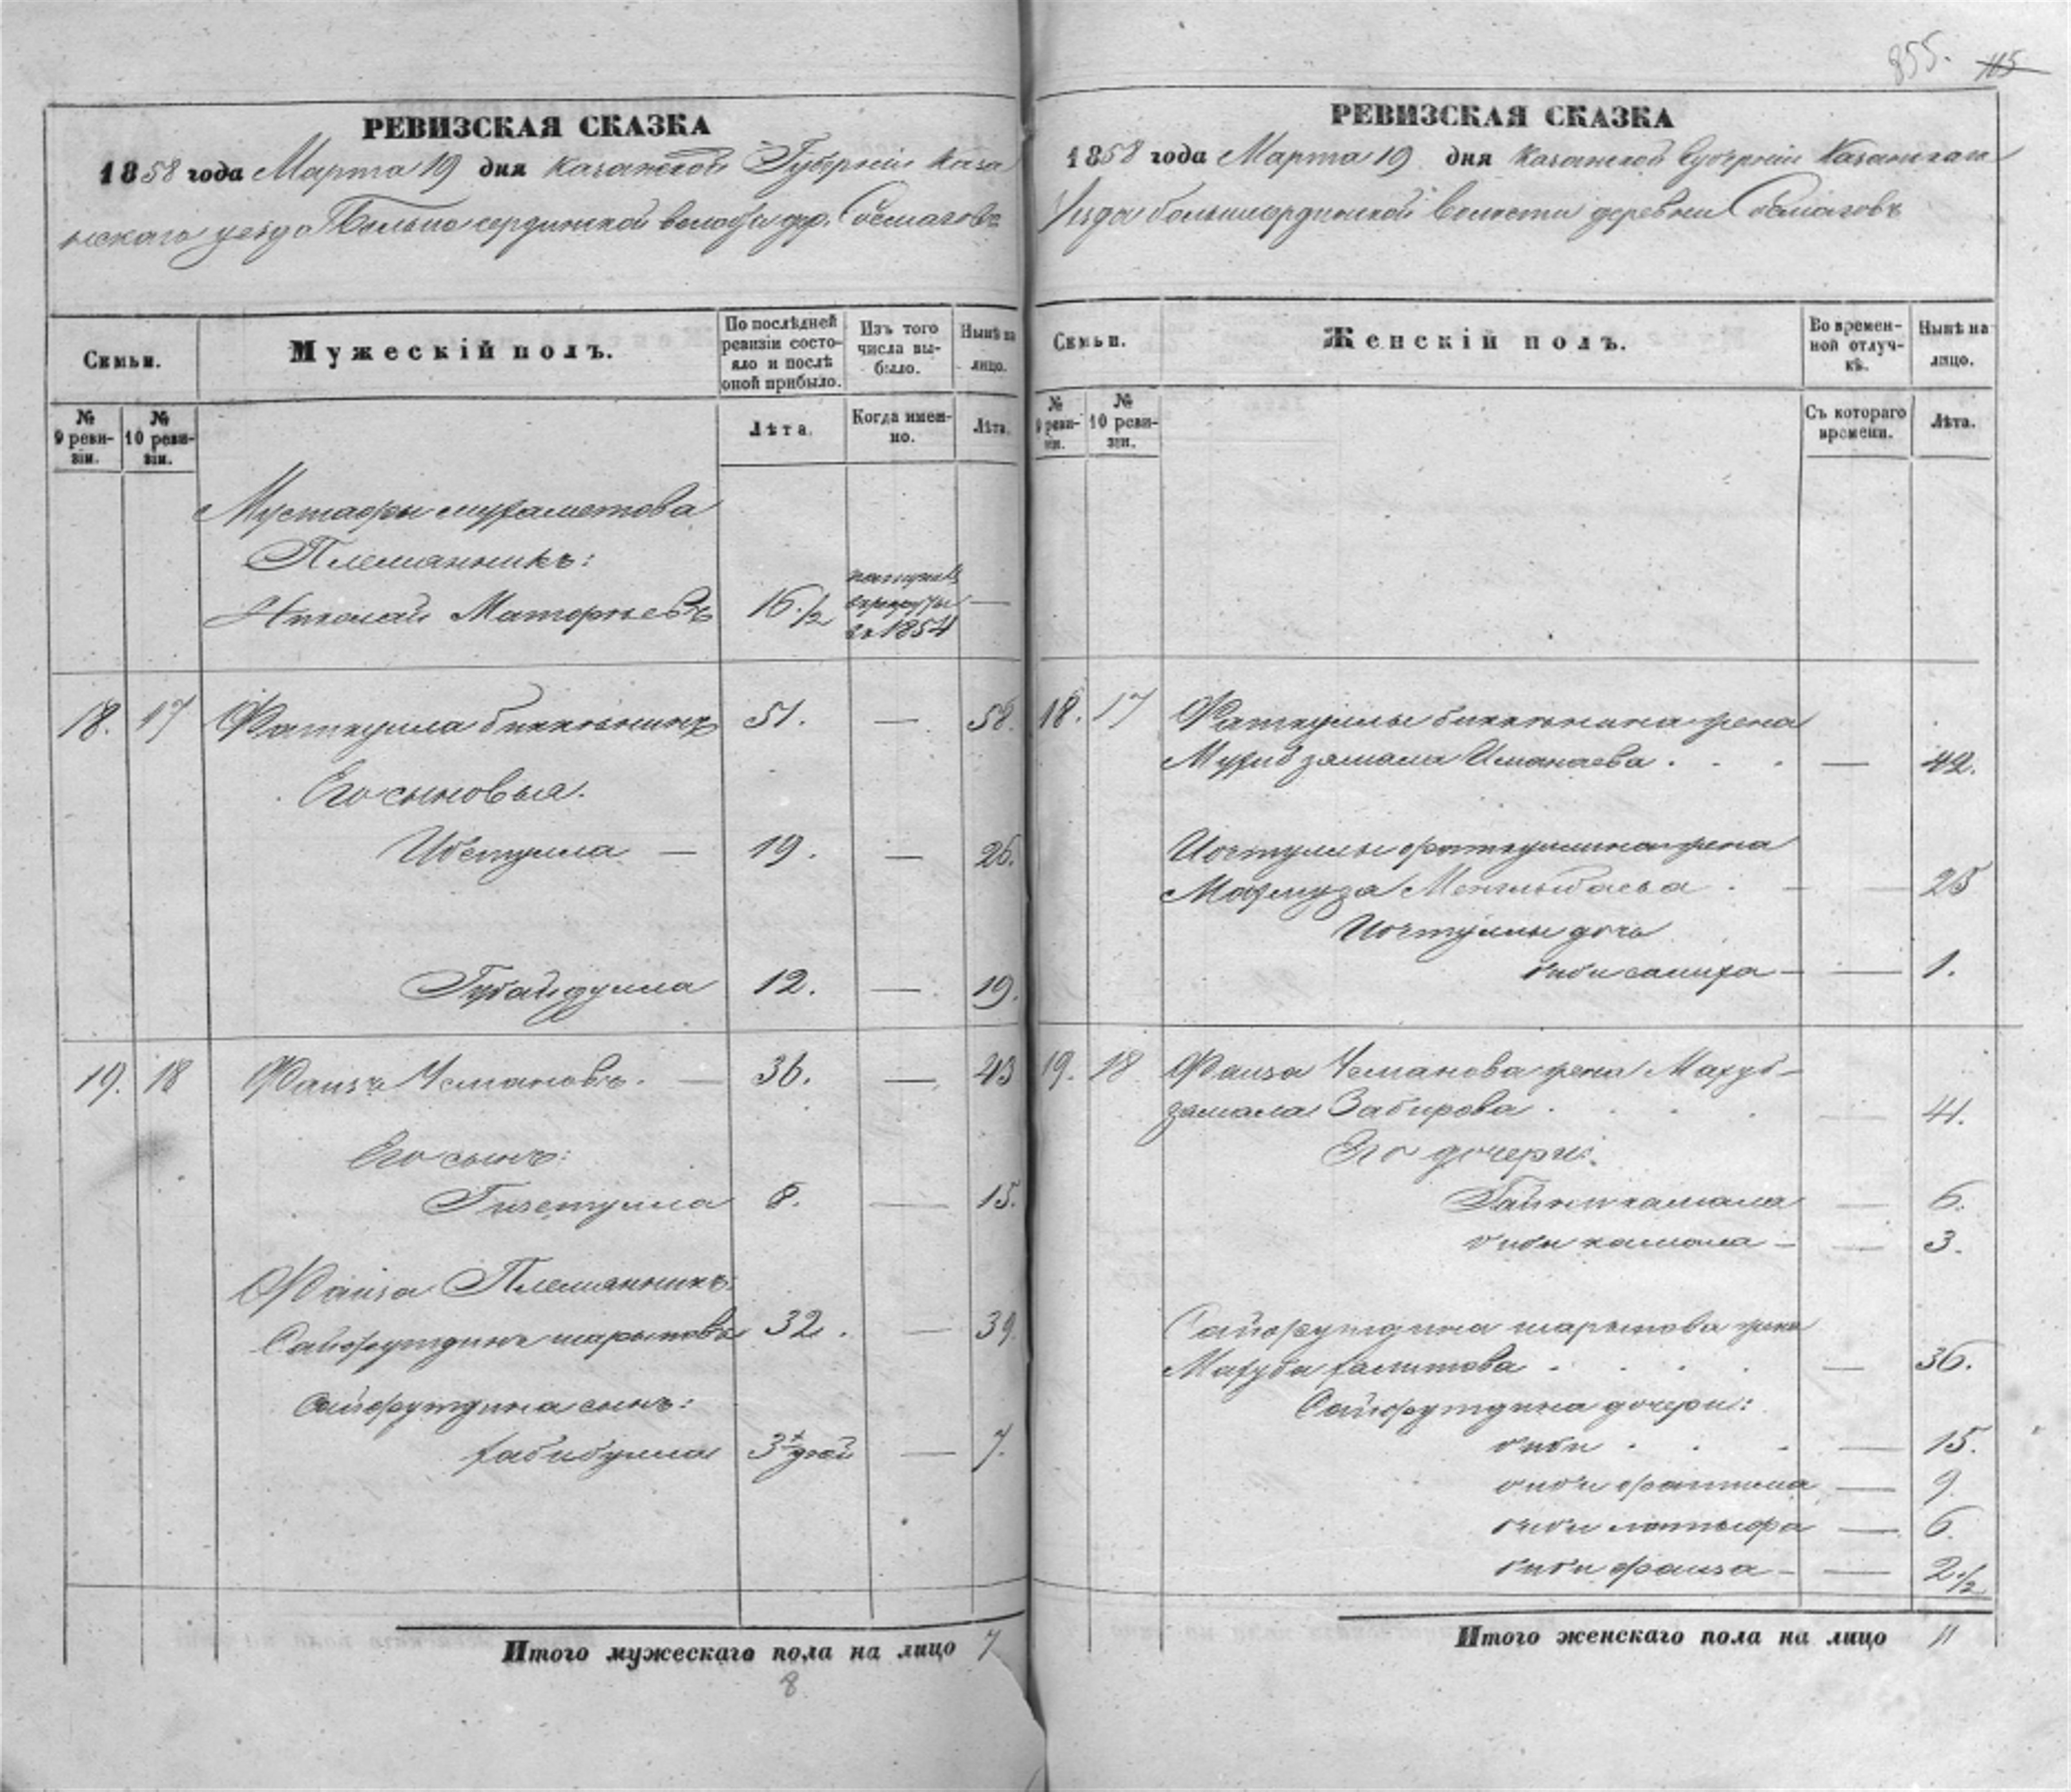 855. 115
РЕВИЗСКАЯ СКАЗКА
1858 года Марта 19 дня Казанской Губернiи Каза
нскаго уезда Больше сердинской волости дер.
Семьи.
Мужескiй полъ.
По послѣдней ревизiи состояло и послѣ оной прибыло.
Изъ того числа выбыло.
Нынѣ на лицо.
№ 9 ревизiи.
№ 10 ревизiи.
Лѣта.
Когда именно.
Лѣта.
Мустафы мухаметова
Племянникъ:
Николай Матфеевъ 16 1/2 в рекруты в 1854 —
18. 17 Фаткулла 51. — 58.
Его сыновья.
Ибетулла — 19. — 26.
Губайдулла 12. — 19.
19. 18 Фаизъ Усмановъ. — 36. — 43
Его сынъ:
Гизетулла 8. — 15.
Фаиза Племянникъ:
Сайфутдинъ шарыповъ 32. — 39.
Сайфутдина сынъ:
хабибулла — 7.
Итого мужескаго пола на лицо 7
8
РЕВИЗСКАЯ СКАЗКА
1858 года Марта 19 дня Казанской Губернiи Казанскаго
Уезда большесердинской Волости деревни
Семьи.
Женскiй полъ.
Во временной отлучкѣ.
Нынѣ на лицо.
№ 9 ревизiи.
№ 10 ревизiи.
Съ котораго времени.
Лѣта.
18. 17 Фаткуллы жена
Иманаева . . . — 42.
фаткуллина жена
Махмуза . — — 25
дочь
биби салиха — — 1.
19. 18 Фаиза Усманова жена Махуб-
замала Забирова . . . . — 41.
Его дочери:
камала — 6.
биби камала — — 3.
Сайфутдина шарыпова жена
Махуба халитова . . . . — 36.
Сайфутдина дочери:
биби . . . — 15.
биби фатима — 9.
биби латыфа — 6.
биби фаиза — — 2 1/2
Итого женскаго пола на лицо 11